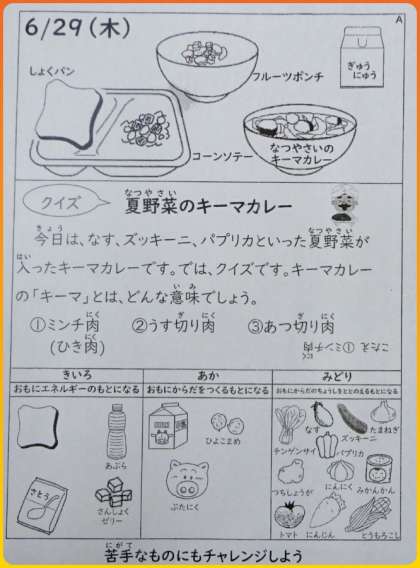 6/29(木)
A
しょくパン
フルーツポンチ
ぎゅうにゅう
コーンソテー
なつやさいの
キーマカレー
クイズ
夏野菜のキーマカレー
今日は、なす、ズッキーニ、パプリカといった夏野菜が
入ったキーマカレーです。では、クイズです。キーマカレー
の「キーマ」とは、どんな意味でしょう。
①ミンチ肉 ②うす切り肉 ③あつ切り肉
(ひき肉)
こたえ ①ミンチ肉
きいろ
おもにエネルギーのもとになる
あか
おもにからだをつくるもとになる
みどり
おもにからだのちょうしをととのえるもとになる
あぶら
さとう
さんしょく
ゼリー
ひよこまめ
ぶたにく
なす
ズッキーニ
たまねぎ
チンゲンサイ
パプリカ
つちしょうが
にんにく
みかんかん
トマト
にんじん
とうもろこし
苦手なものにもチャレンジしよう